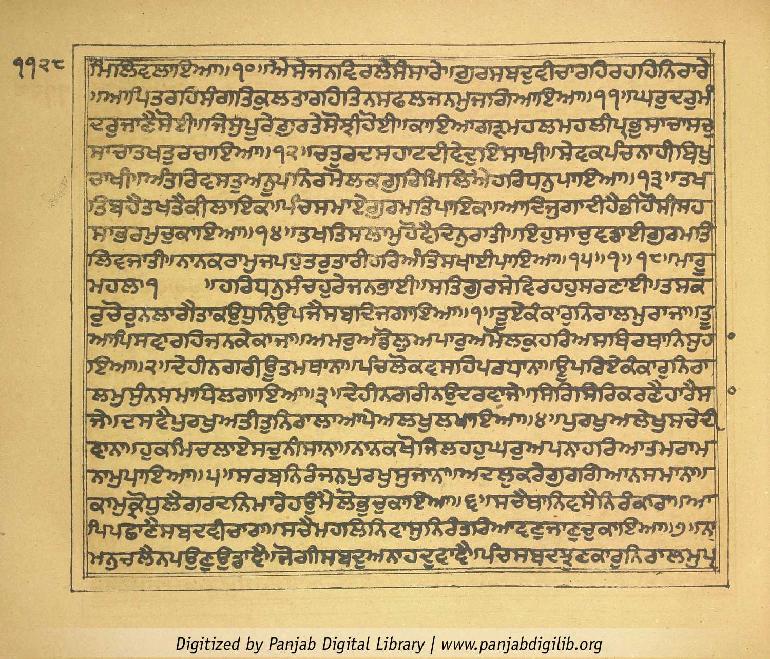 ੧੧੨੮
ਮਿਲਿਵਲਾਇਆ॥੧੦॥ਐਸੇਜਨਵਿਰਲੇਸੰਸਾਰੇ॥ਗੁਰਸਬਦਵੀਚਾਰਹਿਰਹਹਿਨਿਰਾਰੇ
॥ਆਪਿਤਰਹਿਸੰਗਤਿਕੁਲਤਾਰਹਿਤਿਨਸਫਲਜਨਮੁਜਗਿਆਇਆ॥੧੧॥ਘਰੁਦਰੁਮੰ
ਦਰੁਜਾਣੈਸੋਈ॥ਜਿਸੁਪੂਰੇਗੁਰਤੇਸੋਝੀਹੋਈ॥ਕਾਇਆਗੜਮਹਲਮਹਲੀਪ੍ਰਭੁਸਾਚਾਸਚੁ
ਸਾਚਾਤਖਤੁਰਚਾਇਆ॥੧੨॥ਚਤੁਰਦਸਹਾਟਦੀਵੇਦੁਇਸਾਖੀ॥ਸੇਵਕਪੰਚਨਾਹੀਬਿਖੁ
ਚਾਖੀ॥ਅੰਤਰਿਵਸਤੁਅਨੂਪਨਿਰਮੋਲਕਗੁਰਿਮਿਲਿਐਹਰਿਧਨੁਪਾਇਆ॥੧੩॥ਤਖ
ਤਿਬਹੈਤਖਤੈਕੀਲਾਇਕ॥ਪੰਚਸਮਾਏਗੁਰਮਤਿਪਾਇਕ॥ਆਦਿਜੁਗਾਦੀਹੈਭੀਹੋਸੀਸਹ
ਸਾਭਰਮੁਚੁਕਾਇਆ॥੧੪॥ਤਖਤਿਸਲਾਮੁਹੋਵੈਦਿਨੁਰਾਤੀ॥ਇਹੁਸਾਚੁਵਡਾਈਗੁਰਮਤਿ
ਲਿਵਜਾਤੀ॥ਨਾਨਕਰਾਮੁਜਪਹੁਤਰੁਤਾਰੀਹਰਿਅੰਤਿਸਖਾਈਪਾਇਆ॥੧੫॥੧॥੧੮॥ਮਾਰੂ
ਮਹਲਾ੧ ॥ਹਰਿਧਨੁਸੰਚਹੁਰੇਜਨਭਾਈ॥ਸਤਿਗੁਰਸੇਵਿਰਹਹੁਸਰਣਾਈ॥ਤਸਕ
ਰੁਚੋਰੁਨਲਾਗੈਤਾਕਉਧੁਨਿਉਪਜੈਸਬਦਿਜਗਾਇਆ॥੧॥ਤੂਏਕੰਕਾਰੁਨਿਰਾਲਮੁਰਾਜਾ॥ਤੂ
ਆਪਿਸਵਾਰਹਿਜਨਕੇਕਾਜਾ॥ਅਮਰੁਅਡੋਲੁਅਪਾਰੁਅਮੋਲਕੁਹਰਿਅਸਥਿਰਥਾਨਿਸੁਹ
ਾਇਆ॥੨॥ਦੇਹੀਨਗਰੀਊਤਮਥਾਨਾ॥ਪੰਚਲੋਕਵਸਹਿਪਰਧਾਨਾ॥ਊਪਰਿਏਕੰਕਾਰੁਨਿਰਾ
ਲਮੁਸੁੰਨਸਮਾਧਿਲਗਾਇਆ॥੩॥ਦੇਹੀਨਗਰੀਨਉਦਰਵਾਜੇ॥ਸਿਰਿਸਿਰਿਕਰਣੈਹਾਰੈਸ
ਾਜੇ॥ਦਸਵੈਪੁਰਖੁਅਤੀਤੁਨਿਰਾਲਾਆਪੇਅਲਖੁਲਖਾਇਆ॥੪॥ਪੁਰਖੁਅਲੇਖੁਸਚੇਦੀ
ਵਾਨਾ॥ਹੁਕਮਿਚਲਾਏਸਚੁਨੀਸਾਨਾ॥ਨਾਨਕਖੋਜਿਲਹਹੁਘਰੁਅਪਨਾਹਰਿਆਤਮਰਾਮ
ਨਾਮੁਪਾਇਆ॥੫॥ਸਰਬਨਿਰੰਜਨਪੁਰਖੁਸੁਜਾਨਾ॥ਅਦਲੁਕਰੇਗੁਰਗਿਆਨਸਮਾਨਾ॥
ਕਾਮੁਕ੍ਰੋਧੁਲੈਗਰਦਨਿਮਾਰੇਹਉਮੈਲੋਭੁਚੁਕਾਇਆ॥੬॥ਸਚੈਥਾਨਿਵਸੈਨਿਰੰਕਾਰਾ॥ਆ
ਪਿਪਛਾਣੈਸਬਦਵੀਚਾਰਾ॥ਸਚੈਮਹਲਿਨਿਵਾਸੁਨਿਰੰਤਰਿਆਵਣੁਜਾਣੁਚੁਕਾਇਆ॥੭॥ਨਾ
ਮਨੁਚਲੈਨਪਉਣੁਉਡਾਵੈ॥ਜੋਗੀਸਬਦੁਅਨਾਹਦੁਵਾਵੈ॥ਪੰਚਸਬਦਝੁਣਕਾਰੁਨਿਰਾਲਮੁਪ੍ਰ
Digitized by Panjab Digital Library | www.panjabdigilib.org